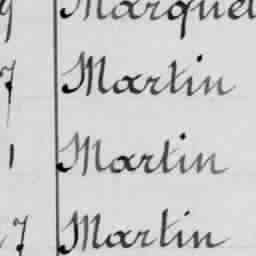 9 Marquet
7 Martin
1 Martin
17 Martin